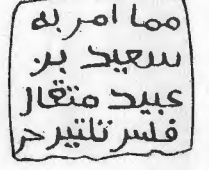 مما امر به
سعيد بن
عبيد مثقال
فلس ثلثين